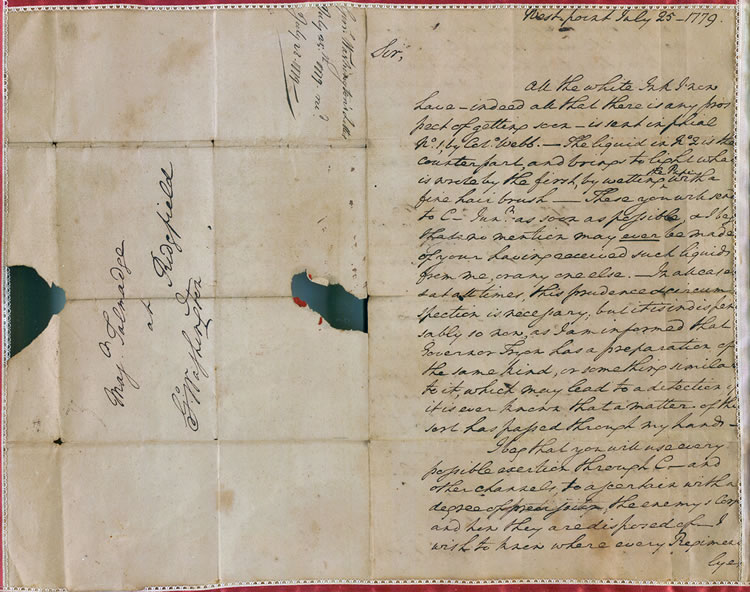 West-point July 25-1779.
Sir,
All the white Ink I now
have - indeed all that there is any pros
pect of getting soon - is sent in phial
No. 1, by Colo. Webb. - The liquid in No. 2 is the
counterpart, and brings to light what
is wrote by the first, by wetting the paper with a
fine hair brush - These you will send
to C- Junr. as soon as possible & I beg
that no mention may ever be made
of your having received such liquids
from me, or any one else. - In all cases
& at all times this prudence & circum
spection is necessary, but it is indispen
sably so now, as I am informed that
Governor Tryon has a preparation of
the same kind, or something similar
to it, which may lead to a detection if
it is ever known that a matter of this
sort has passed through my hands -
I beg that you will use every
possible exertion through C- and
other channels to ascertain with a
degree of precision, the enemy's
and how they are disposed of - I
wish to know where every Regiment
lyes
Majr. Talmadge
at Ridgefield
Go: Washington
Genl. Washington's
July 25th 1779
July 25 1779